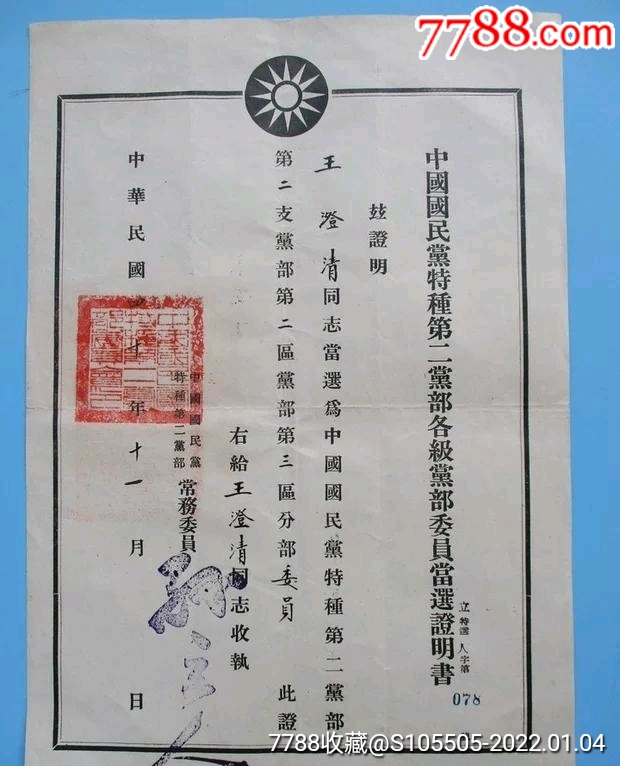 7788.com
中國國民黨特種第二黨部各級黨部委員當選證明書
立特選人字第
078
玆證明
王澄清同志當選爲中國國民黨特種第二黨部
第二支黨部第二區黨部第三區分部委員 此證
右給王澄清同志收執
中國國民黨
特種第二黨部
常務委員
中華民國四十年十一月 日
7788收藏@S105505-2022.01.04